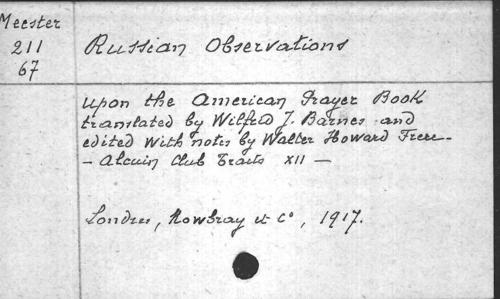 Meester
211
67
Russian Observations
upon the American Prayer Book
translated by Wilfrid J. Barnes and
edited with notes by Walter Howard Frere
- Alcuin Club Tracts XII -
Londres, Mowbray et Cº, 1917.